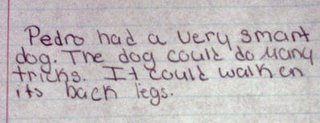 Pedro had a very smart
dog. The dog could do many
tricks. It could walk on
its back legs.